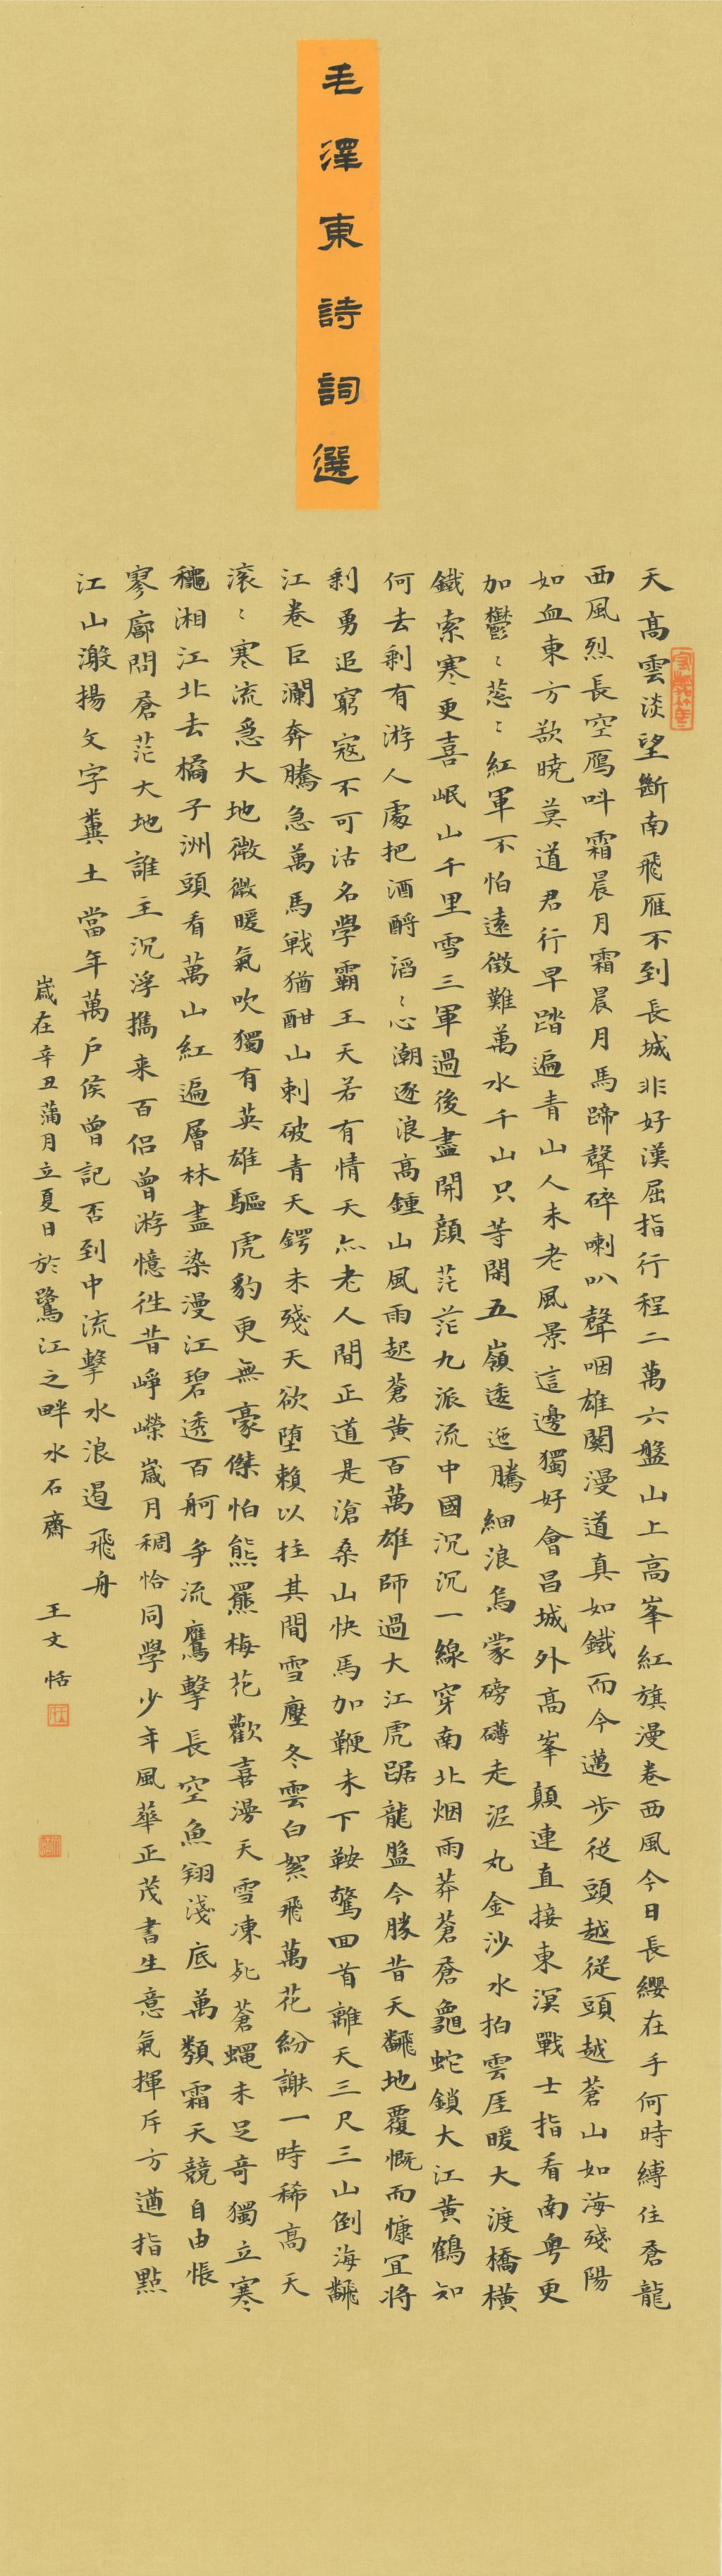 毛澤東詩詞選
天高雲淡望斷南飛雁不到長城非好漢屈指行程二萬六盤山上高峯紅旗漫卷西風今日長纓在手何時縛住蒼龍
西風烈長空鴈叫霜晨月霜晨月馬蹄聲碎喇叭聲咽雄關漫道真如鐵而今邁步從頭越從頭越蒼山如海殘陽
如血東方欲曉莫道君行早踏遍青山人未老風景這邊獨好會昌城外高峯顛連直接東溟戰士指看南粵更
加鬱〻蔥〻紅軍不怕遠徵難萬水千山只等閑五嶺逶迤騰細浪烏蒙磅礴走泥丸金沙水拍雲厓暖大渡橋橫
鐵索寒更喜岷山千里雪三軍過後盡開顔茫茫九派流中國沉沉一線穿南北烟雨莽蒼蒼龜蛇鎖大江黃鶴知
何去剩有游人處把酒酹滔〻心潮逐浪高鍾山風雨起蒼黃百萬雄師過大江虎踞龍盤今勝昔天翻地覆慨而慷宜將
剩勇追窮寇不可沽名學霸王天若有情天亦老人間正道是滄桑山快馬加鞭未下鞍驚回首離天三尺三山倒海翻
江卷巨瀾奔騰急萬馬戰猶酣山刺破青天鍔未殘天欲墮賴以拄其間雪壓冬雲白絮飛萬花紛謝一時稀高天
滚〻寒流急大地微微暖氣吹獨有英雄驅虎豹更無豪傑怕熊羆梅花歡喜漫天雪凍死蒼蠅未足奇獨立寒
穐湘江北去橘子洲頭看萬山紅遍層林盡染漫江碧透百舸爭流鷹擊長空魚翔淺底萬類霜天競自由悵
寥廓問蒼茫大地誰主沉浮攜来百侶曾游憶徃昔崢嶸歲月稠恰同學少年風華正茂書生意氣揮斥方遒指點
江山激揚文字糞土當年萬戶侯曾記否到中流擊水浪遏飛舟
歲在辛丑蒲月立夏日於鷺江之畔水石齋 王文恬